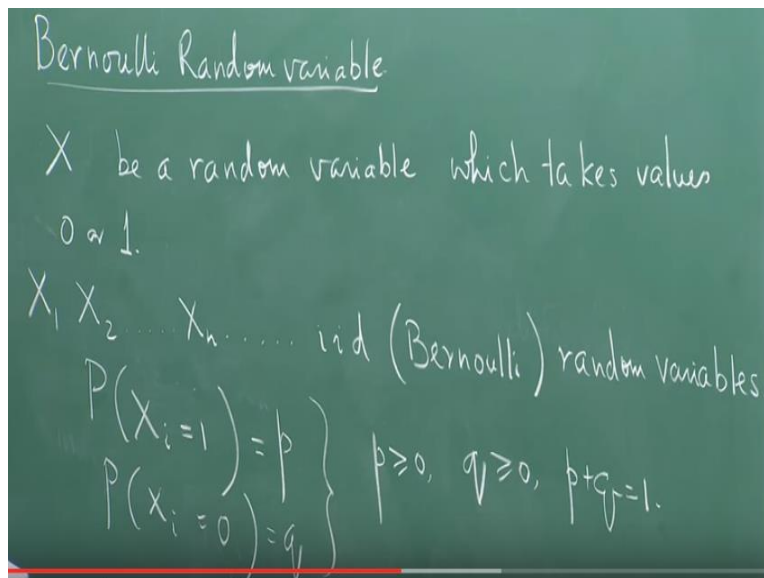 Bernoulli Random variable
X be a random variable which takes values
0 or 1.
X₁ X₂ .... Xₙ ...... iid (Bernoulli) random variables
P(Xᵢ=1)=p } p≥0, q≥0, p+q=1.
P(Xᵢ=0)=q